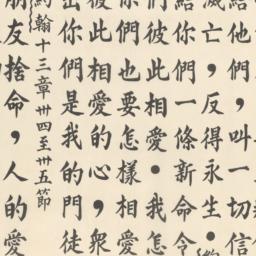 給他們，叫一切信
滅亡，反得永生。約
給你們一條新命令
彼此相愛。我怎
們也要怎樣，相愛
彼此相愛的心，眾
出你們是我的門徒
約翰十三章卅四至卅五節
朋友捨命，人的愛